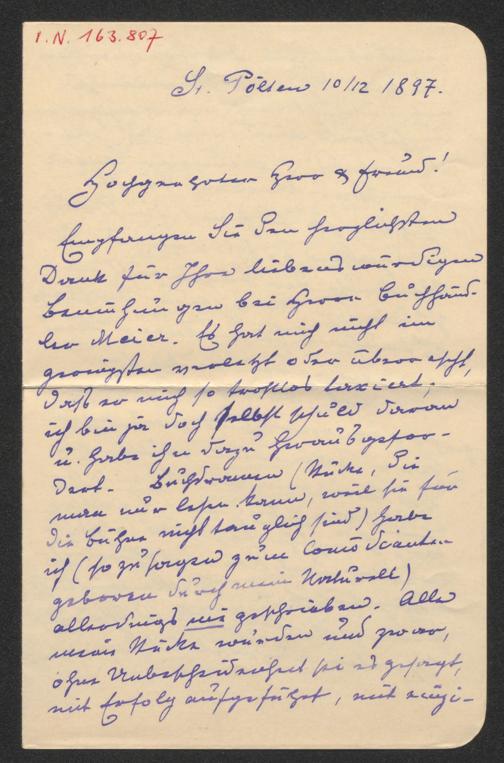 I.N. 163.807
St. Pölten 10/12 1897.
Hochgeehrter Herr & Freund!
Empfangen Sie den herzlichsten
Dank für Ihre liebenswürdigen
Bemühungen bei Herrn Buchhänd-
ler Meier. Es hat mich nicht im
geringsten verletzt oder überrascht,
daß er mich so trostlos taxiert;
ich bin ja doch selbst schuld daran
u. habe ihn dazu herausgefor-
dert. Buchdramen (Stücke, die
man nur lesen kann, weil sie für
die Bühne nicht tauglich sind) habe
ich (so zu sagen zum Comödianten
geboren durch mein Naturell)
allerdings nie geschrieben. Alle
meine Stücke wurden und zwar,
ohne Unbescheidenheit sei es gesagt,
mit Erfolg aufgeführt, mit einzi-